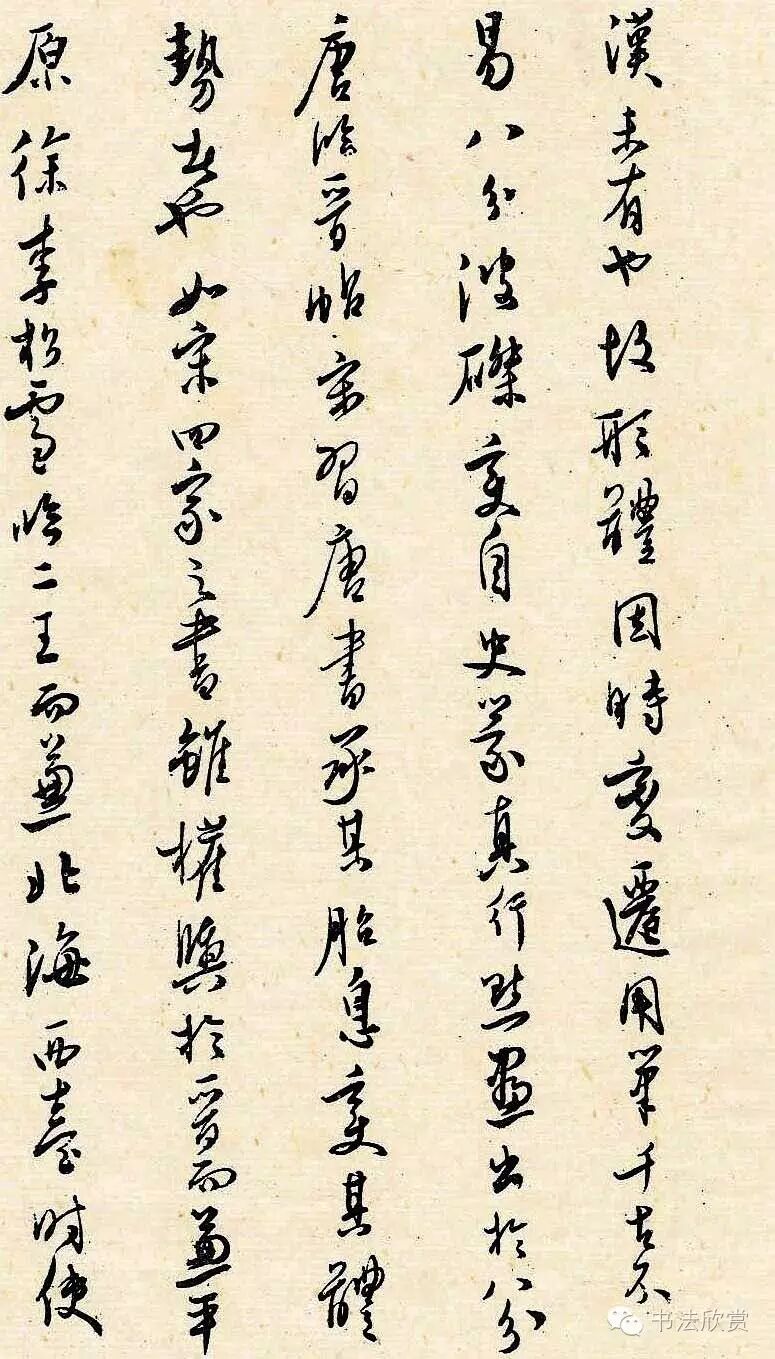 漢未有也故形體因時變遷用筆千古不
易八分波磔變自史篆真行點畫出於八分
唐臨晉帖宋習唐書承其胎息變其體
勢者也如宋四家之書雖權輿於晉而兼平
原徐李松雪臨二王而兼北海西臺時使
书法欣赏